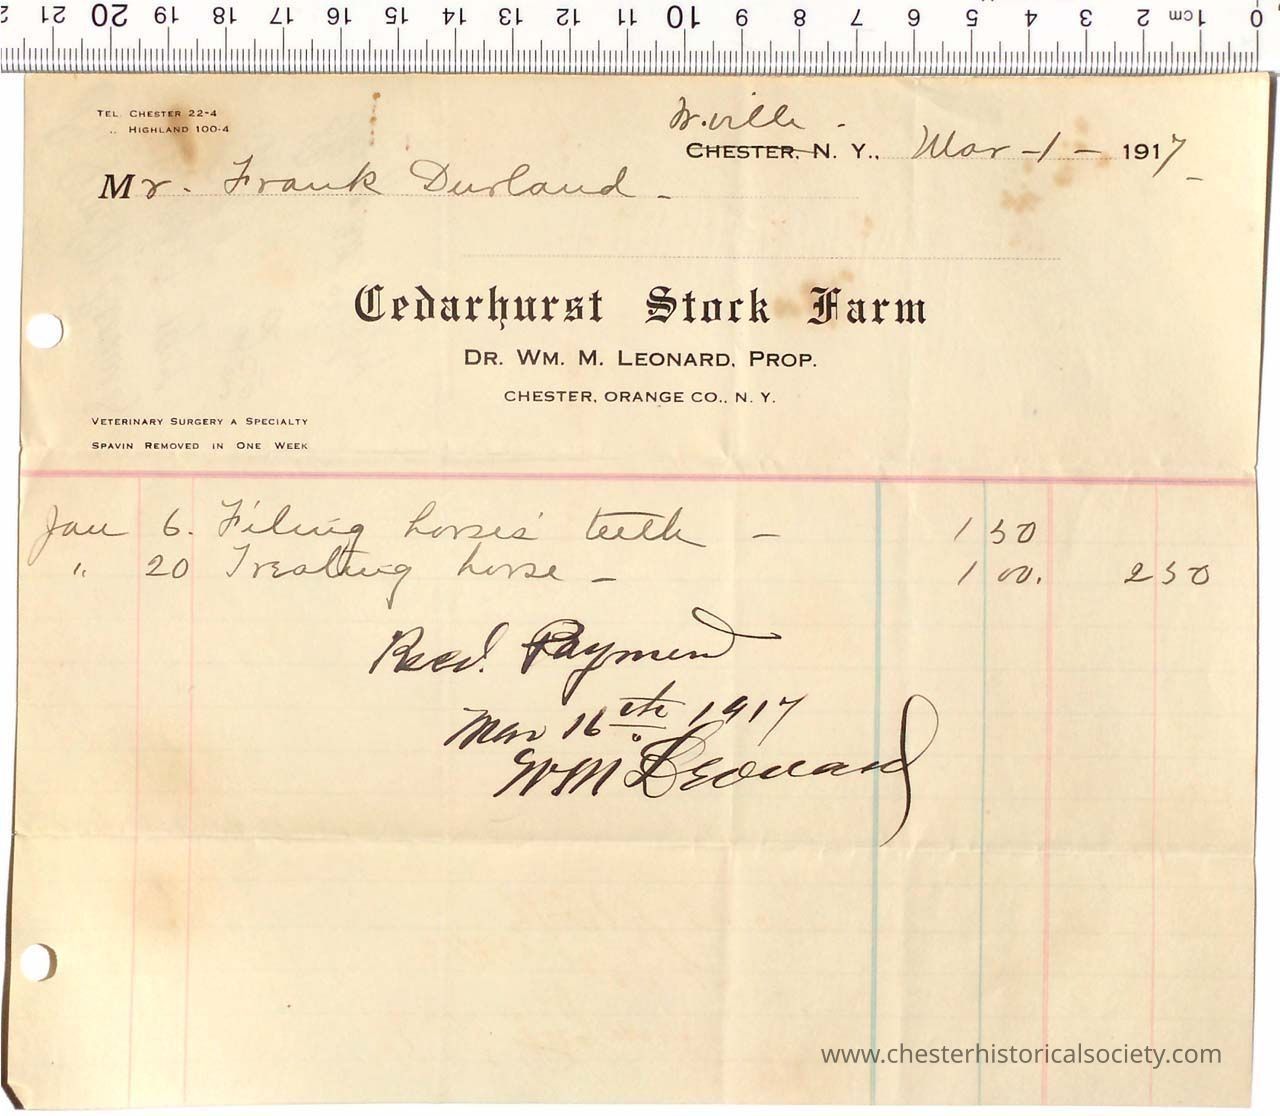 0 1cm 2 3 4 5 6 7 8 9 10 11 12 13 14 15 16 17 18 19 20 21 2
TEL. CHESTER 22-4
„ HIGHLAND 100-4
W.ville -
CHESTER, N. Y., Mar -1- 1917 -
Mr. Frank Durland -
Cedarhurst Stock Farm
DR. WM. M. LEONARD, PROP.
CHESTER, ORANGE CO., N. Y.
VETERINARY SURGERY A SPECIALTY
SPAVIN REMOVED IN ONE WEEK
Jan 6. Filing horses' teeth - 1 50
" 20 Treating horse - 1 00. 2 50
Recd. Payment
Mar 16th 1917
WM Leonard
www.chesterhistoricalsociety.com